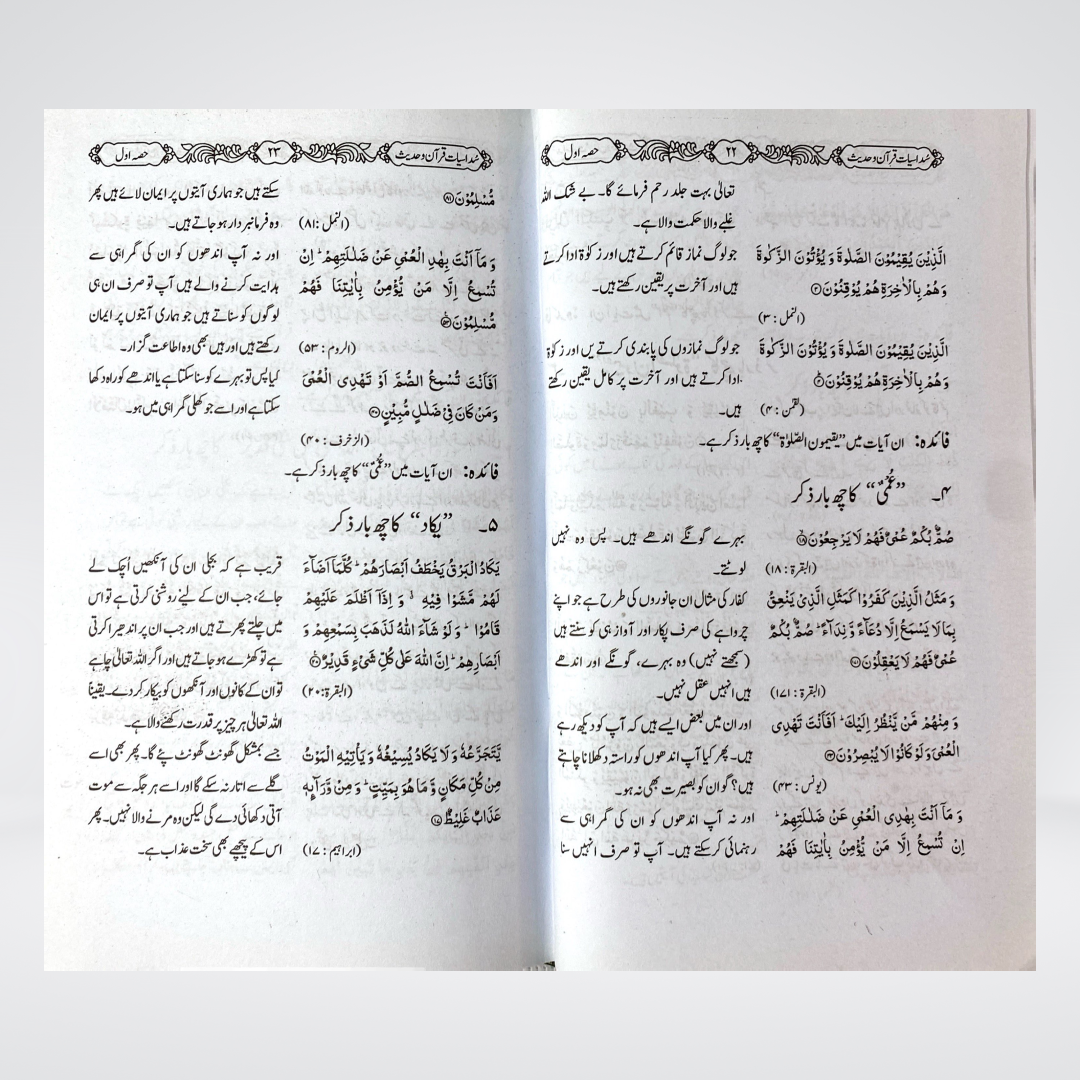 سُداسیات قرآن و حدیث ۲۲ حصہ اول
تعالیٰ بہت جلد رحم فرمائے گا۔ بے شک اللہ
غلبے والا حکمت والا ہے۔
الَّذِيْنَ يُقِيْمُوْنَ الصَّلٰوةَ وَ يُؤْتُوْنَ الزَّكٰوةَ
وَهُمْ بِالْاٰخِرَةِ هُمْ يُوْقِنُوْنَ۝۳
(النمل : ۳)
جو لوگ نماز قائم کرتے ہیں اور زکوٰۃ ادا کرتے
ہیں اور آخرت پر یقین رکھتے ہیں۔
الَّذِيْنَ يُقِيْمُوْنَ الصَّلٰوةَ وَ يُؤْتُوْنَ الزَّكٰوةَ
وَهُمْ بِالْاٰخِرَةِ هُمْ يُوْقِنُوْنَ۝۴
(لقمٰن : ۴)
جو لوگ نمازوں کی پابندی کرتے یں اور زکوٰۃ
ادا کرتے ہیں اور آخرت پر کامل یقین رکھتے
ہیں۔
فائدہ: ان آیات میں ”یقیمون الصّلوٰۃ“ کا چھ بار ذکر ہے۔
۴۔ ”عُمْیٌ“ کا چھ بار ذکر
صُمٌّۢ بُكْمٌ عُمْيٌ فَهُمْ لَا يَرْجِعُوْنَ۝۱۸
(البقرة : ۱۸)
بہرے گونگے اندھے ہیں۔ پس وہ نہیں
لوٹتے۔
وَ مَثَلُ الَّذِيْنَ كَفَرُوْا كَمَثَلِ الَّذِيْ يَنْعِقُ
بِمَا لَا يَسْمَعُ اِلَّا دُعَآءً وَّ نِدَآءً١ؕ صُمٌّۢ بُكْمٌ
عُمْيٌ فَهُمْ لَا يَعْقِلُوْنَ۝۱۷۱
(البقرة : ۱۷۱)
کفار کی مثال ان جانوروں کی طرح ہے جو اپنے
چرواہے کی صرف پکار اور آواز ہی کو سنتے ہیں
(سمجھتے نہیں) وہ بہرے، گونگے اور اندھے
ہیں انہیں عقل نہیں۔
وَ مِنْهُمْ مَّنْ يَّنْظُرُ اِلَيْكَ١ؕ اَفَاَنْتَ تَهْدِي
الْعُمْيَ وَ لَوْ كَانُوْا لَا يُبْصِرُوْنَ۝۴۳
(یونس : ۴۳)
اور ان میں بعض ایسے ہیں کہ آپ کو دیکھ رہے
ہیں۔ پھر کیا آپ اندھوں کو راستہ دکھلانا چاہتے
ہیں؟ گو ان کو بصیرت بھی نہ ہو۔
وَ مَاۤ اَنْتَ بِهٰدِي الْعُمْيِ عَنْ ضَلٰلَتِهِمْ١ؕ
اِنْ تُسْمِعُ اِلَّا مَنْ يُّؤْمِنُ بِاٰيٰتِنَا فَهُمْ
اور نہ آپ اندھوں کو ان کی گمراہی سے
رہنمائی کر سکتے ہیں۔ آپ تو صرف انہیں سنا
سُداسیات قرآن و حدیث ۲۳ حصہ اول
مُّسْلِمُوْنَ۝۸۱
(النمل : ۸۱)
سکتے ہیں جو ہماری آیتوں پر ایمان لائے ہیں پھر
وہ فرمانبردار ہو جاتے ہیں۔
وَ مَاۤ اَنْتَ بِهٰدِ الْعُمْيِ عَنْ ضَلٰلَتِهِمْ١ؕ اِنْ
تُسْمِعُ اِلَّا مَنْ يُّؤْمِنُ بِاٰيٰتِنَا فَهُمْ
مُّسْلِمُوْنَ۝۵۳
(الروم : ۵۳)
اور نہ آپ اندھوں کو ان کی گمراہی سے
ہدایت کرنے والے ہیں آپ تو صرف ان ہی
لوگوں کو سناتے ہیں جو ہماری آیتوں پر ایمان
رکھتے ہیں اور ہیں بھی وہ اطاعت گزار۔
اَفَاَنْتَ تُسْمِعُ الصُّمَّ اَوْ تَهْدِي الْعُمْيَ
وَ مَنْ كَانَ فِيْ ضَلٰلٍ مُّبِيْنٍ۝۴۰
(الزخرف : ۴۰)
کیا پس تو بہرے کو سنا سکتا ہے یا اندھے کو راہ دکھا
سکتا ہے اور اسے جو کھلی گمراہی میں ہو۔
فائدہ: ان آیات میں ”عُمْیٌ“ کا چھ بار ذکر ہے۔
۵۔ ”یکاد“ کا چھ بار ذکر
يَكَادُ الْبَرْقُ يَخْطَفُ اَبْصَارَهُمْ١ؕ كُلَّمَاۤ اَضَآءَ
لَهُمْ مَّشَوْا فِيْهِ١ۙ وَ اِذَاۤ اَظْلَمَ عَلَيْهِمْ
قَامُوْا١ؕ وَ لَوْ شَآءَ اللّٰهُ لَذَهَبَ بِسَمْعِهِمْ وَ
اَبْصَارِهِمْ١ؕ اِنَّ اللّٰهَ عَلٰى كُلِّ شَيْءٍ قَدِيْرٌ۝۲۰
(البقرة : ۲۰)
قریب ہے کہ بجلی ان کی آنکھیں اُچک لے
جائے، جب ان کے لیے روشنی کرتی ہے تو اس
میں چلتے پھرتے ہیں اور جب ان پر اندھیرا کرتی
ہے تو کھڑے ہو جاتے ہیں اور اگر اللہ تعالیٰ چاہے
تو ان کے کانوں اور آنکھوں کو بیکار کر دے۔ یقیناً
اللہ تعالیٰ ہر چیز پر قدرت رکھنے والا ہے۔
يَّتَجَرَّعُهٗ وَ لَا يَكَادُ يُسِيْغُهٗ وَ يَاْتِيْهِ الْمَوْتُ
مِنْ كُلِّ مَكَانٍ وَّ مَا هُوَ بِمَيِّتٍ١ؕ وَ مِنْ وَّرَآىِٕهٖ
عَذَابٌ غَلِيْظٌ۝۱۷
(ابراہیم : ۱۷)
جسے بمشکل گھونٹ گھونٹ پئے گا۔ پھر بھی اسے
گلے سے اتار نہ سکے گا اور اسے ہر جگہ سے موت
آتی دکھائی دے گی لیکن وہ مرنے والا نہیں۔ پھر
اس کے پیچھے بھی سخت عذاب ہے۔